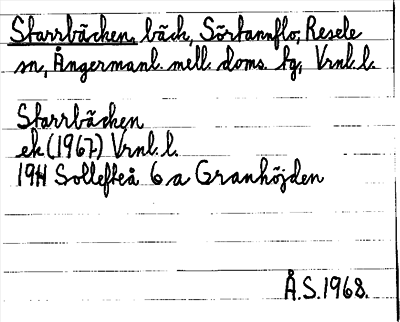 Starrbäcken, bäck, Sörtannflo, Resele
sn, Ångermanl. mell. doms. tg, Vrnl. l.
Starrbäcken
ek (1967) Vrnl. l.
19H Sollefteå 6 a Granhöjden
Å.S. 1968.